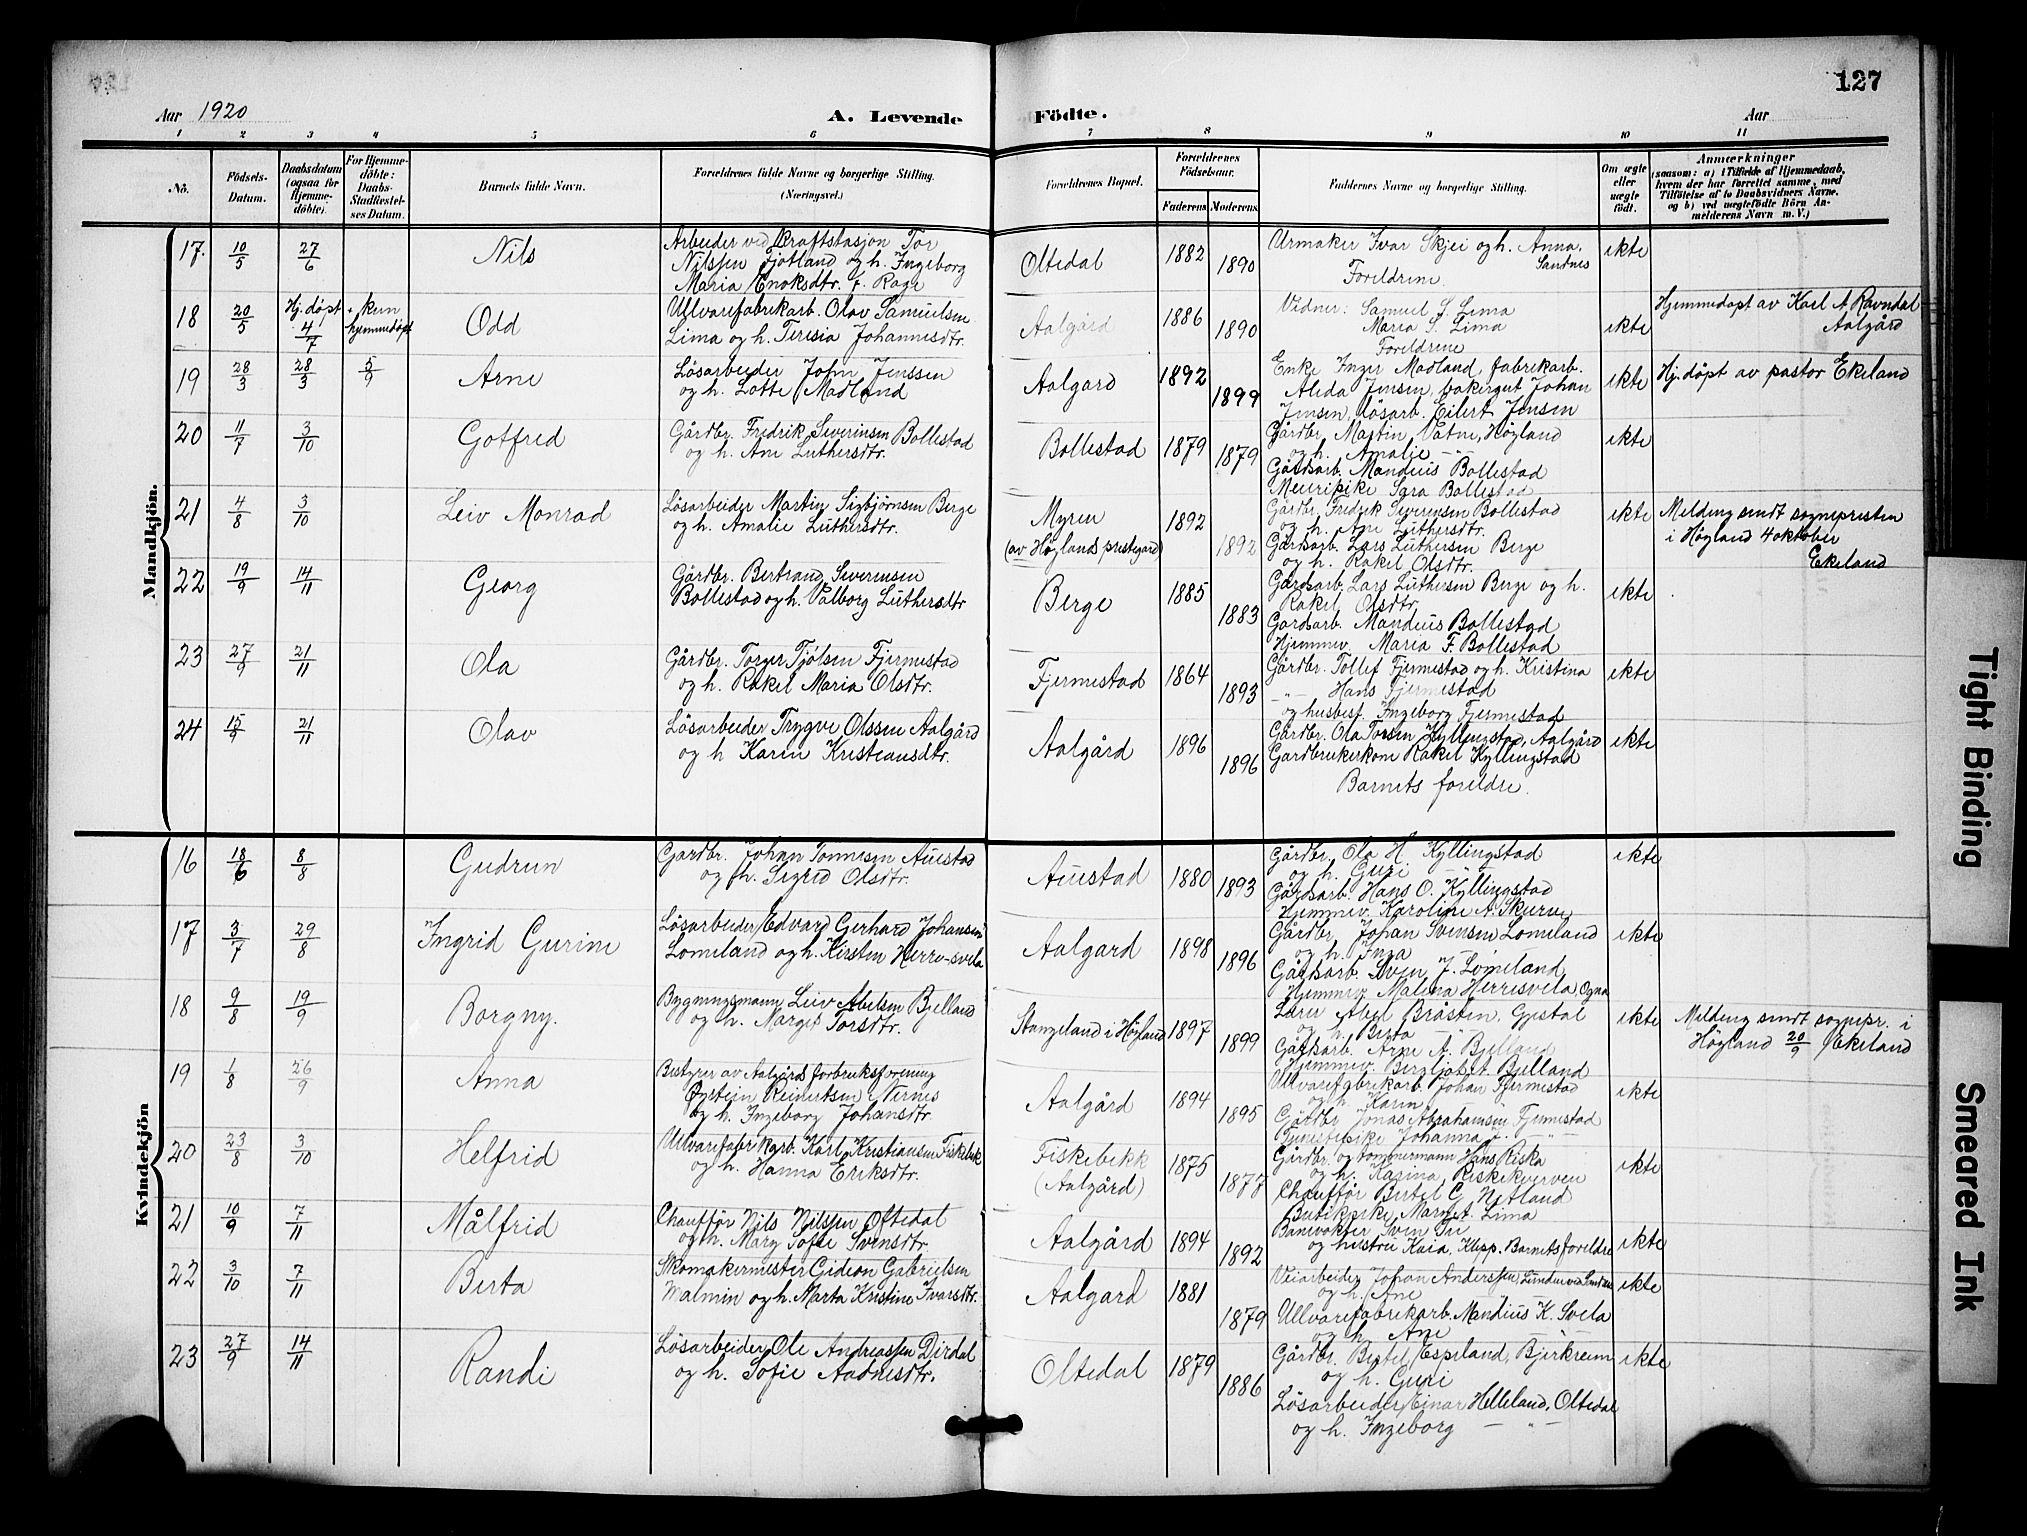 127
Aar 1920
A. Levende
Födte.
Aar
1 2 3 4 5 6 7 8 9 10 11
No.
Födsels-Datum.
Daabsdatum (ogsaa for Hjemme-döbte).
For Hjemme-döbte: Daabs-Stadfæstel-ses Datum.
Barnets fulde Navn.
Forældrenes fulde Navne og borgerlige Stilling. (Næringsvei.)
Forældrenes Bopæl.
Forældrenes Födselsaar.
Faderens
Moderens
Faddernes Navne og borgerlige Stilling.
Om ægte eller uægte födt.
Anmærkninger
(saasom: a) i Tilfælde af Hjemmedaab, hvem der har forrettet samme, med Tilföielse af to Daabsvidners Navne, og b) ved uægtefödte Börn An-melderens Navn m. V.)
Mandkjön.
17. 10/5 27/6 Nils
Arbeider ved Kraftstasjon Tor
Nilssen Fjotland og h. Ingeborg
Maria Enoksdtr. f. Rage
Oltedal 1882 1890
Urmaker Ivar Skjei og h. Anna,
Sandnes
Foreldrene.
ekte
18 20/5 Hj. døpt 4/7 kun hjemmedøpt Odd
Ullvarefabrikarb. Olav Samuelsen
Lima og h. Teresia Johannesdtr.
Aalgård 1886 1890
Vidner: Samuel S. Lima
Maria S. Lima
Foreldrene
ekte
Hjemmedøpt av Karl A. Ravndal
Aalgård
19 28/3 28/3 5/9 Arne
Løsarbeider John Jenssen
og h. Lotte Madland
Aalgard 1892 1899
Enke Inger Madland, fabrikarb.
Alida Jensen, bakergut Johan
Jensen, løsarb. Eilert Jensen
ekte
Hj. døpt av pastor Ekeland
20 11/7 3/10 Gotfred
Gårdbr. Fredrik Severinsen Bollestad
og h. Ane Luthersdtr.
Bollestad 1879 1879
Gårdbr. Martin Vatne, Høgland
og h. Amalie
Gårdsarb. Mandius Bollestad
Meieripike Sara Bollestad
ekte
21 4/8 3/10 Leiv Monrad
Løsarbeider Martin Sigbjørnsen Berge
og h. Amalie Luthersdtr.
Myren
(av Høglands prestegard)
1892 1892
Gårdbr. Fredrik Severinsen Bollestad
og h. Ane Luthersdtr.
Gårdsarb. Lars Luthersen Berge
og h. Rakel Olsdtr.
ekte
Melding sendt sognepresten
i Høgland 4 oktober
Ekeland
22 19/9 14/11 Georg
Gårdbr. Bertrand Severinsen
Bollestad og h. Valborg Luthersdtr
Berge 1885 1883
Gårdsarb. Lars Luthersen Berge og h.
Rakel Olsdtr.
Gårdsarb. Mandius Bollestad
Hjemmev. Maria F. Bollestad
ekte
23 27/9 21/11 Ola
Gårdbr. Torger Tjølsen Fjermestad
og h. Rakel Maria Olsdtr.
Fjermestad 1864 1893
Gårdbr. Tollef Fjermestad og h. Kristina
-"- Hans Fjermestad
og husbest. Ingeborg Fjermestad
ekte
24 15/9 21/11 Olav
Løsarbeider Trygve Olssen Aalgård
og h Karin Kristiansdtr.
Aalgård 1896 1896
Gårdbr. Ola Torsen Kyllingstad, Aalgård
Gardbrukerkone Rakel Kyllingstad
Barnets foreldre.
ekte
Kvindekjön
16 18/6 8/8 Gudrun
Gardbr. Johan Tonnesen Auestad
og h. Sigrid Olsdtr.
Auestad 1880 1893
Gårdbr. Ola H. Kyllingstad
og h. Guri
Gårdsarb. Hans O. Kyllingstad
Hjemmev. Karoline A. Skurve
ekte
17 3/7 29/8 Ingrid Gurine
Løsarbeider Edvard Gerhard Johansen
Lomeland og h. Kirsten Herre-svela
Aalgard 1898 1896
Gårdbr. Johan Svensen Lomeland
og h. Inga
Gårdsarb. Sven J. Lomeland
Hjemmev. Malena Herresvela Ogna
ekte
18 9/8 19/9 Borgny.
Bygningsmann Leiv Abelsen Bjelland
og h. Margit Torsdtr.
Stangeland i Høyland 1897 1899
Lærer Abel Bråsten, Gjestal
og h. Berta
Gårdsarb. Arne A. Bjelland
Hjemmev. Bergljot A. Bjelland
ekte
Melding sendt sognepr. i
Høgland 20/9 Ekeland
19 1/8 26/9 Anna
Bestyrer av Aalgårds forbruksforening
Øystein Reinertsen Nernes
og h. Ingeborg Johansdtr.
Aalgård 1894 1895
Ullvarefabrikarb. Johan Fjermestad
og h. Karin
Gårdbr. Jonas Abrahamsen Fjermestad
Tjenestepike Johanna J. -"-
ekte
20 23/8 3/10 Helfrid
Ullvarefabrikarb. Karl Kristiansen Fiskebek
og h. Hanna Eriksdtr.
Fiskebekk
(Aalgård)
1875 1877
Gårdbr. og tømmermann Hans Riska
og h. Kasina, Riskekverven
Chauffør Bertel G. Netland
Butikpike Margit Lima
ekte
21 10/9 7/11 Målfrid
Chauffør Nils Nilssen Oftedal
og h. Mary Sofie Svensdtr.
Aalgård 1894 1892
Banevokter Sven Tu
og hustru Kaia, Klepp. Barnets foreldre
ekte
22 3/10 7/11 Berta
Skomakermester Gideon Gabrielsen
Malmin og h. Marta Kristine Ivarsdtr.
Aalgard 1881 1879
Veiarbeider Johan Anderssen, Lunden ved Sandnes
og h. Ane
Ullvarefabrikarb. Mandius K. Svela
og h. Ane
ekte
23 27/9 14/11 Randi
Løsarbeider Ole Andreassen Dirdal
og h. Sofie Aadnesdtr.
Oltedal 1879 1886
Gårdbr. Bertel Espeland, Bjerkreim
og h. Guri
Løsarbeider Einar Helleland, Oltedal
og h. Ingeborg -"-
ekte
Tight Binding
Smeared Ink